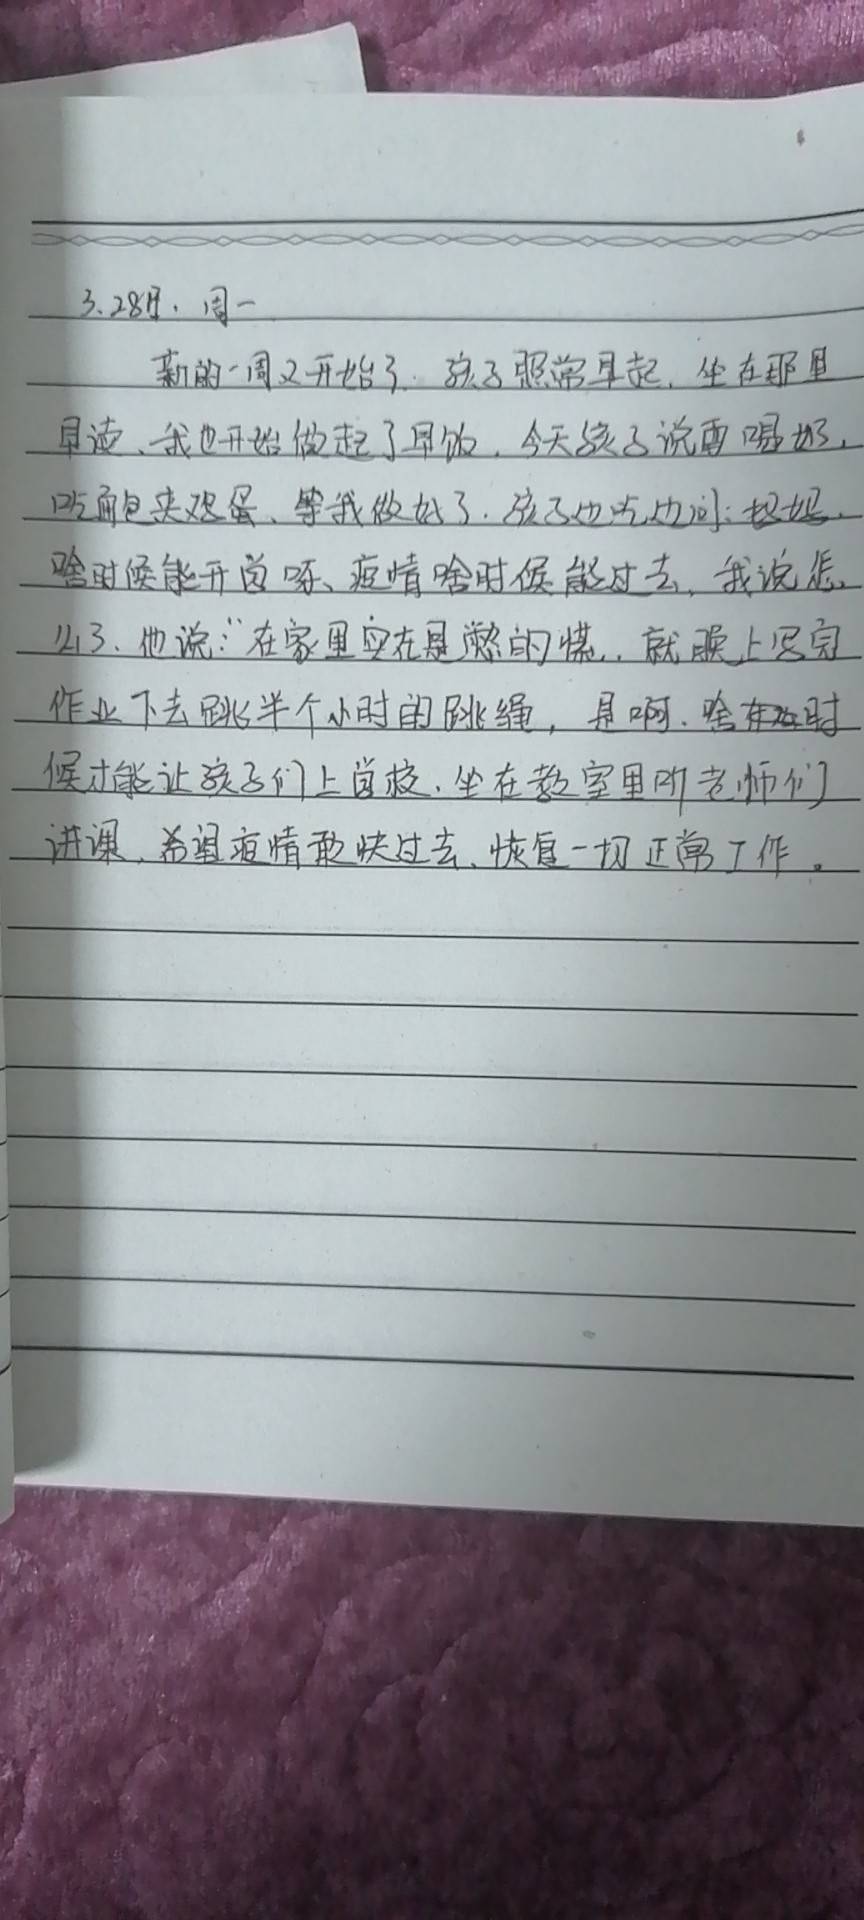 3.28日. 周一
新的一周又开始了. 孩子照常早起, 坐在那里
早读、我也开始做起了早饭, 今天孩子说要喝奶,
吃面包夹鸡蛋、等我做好了. 孩子边吃边问: 妈妈、
啥时候能开学呀、疫情啥时候能过去, 我说怎
么了、他说:“在家里实在是憋的慌, 就晚上写完
作业下去跳半个小时的跳绳, 是啊. 啥时
候才能让孩子们上学校、坐在教室里听老师们
讲课、希望疫情敢快过去、恢复一切正常工作。